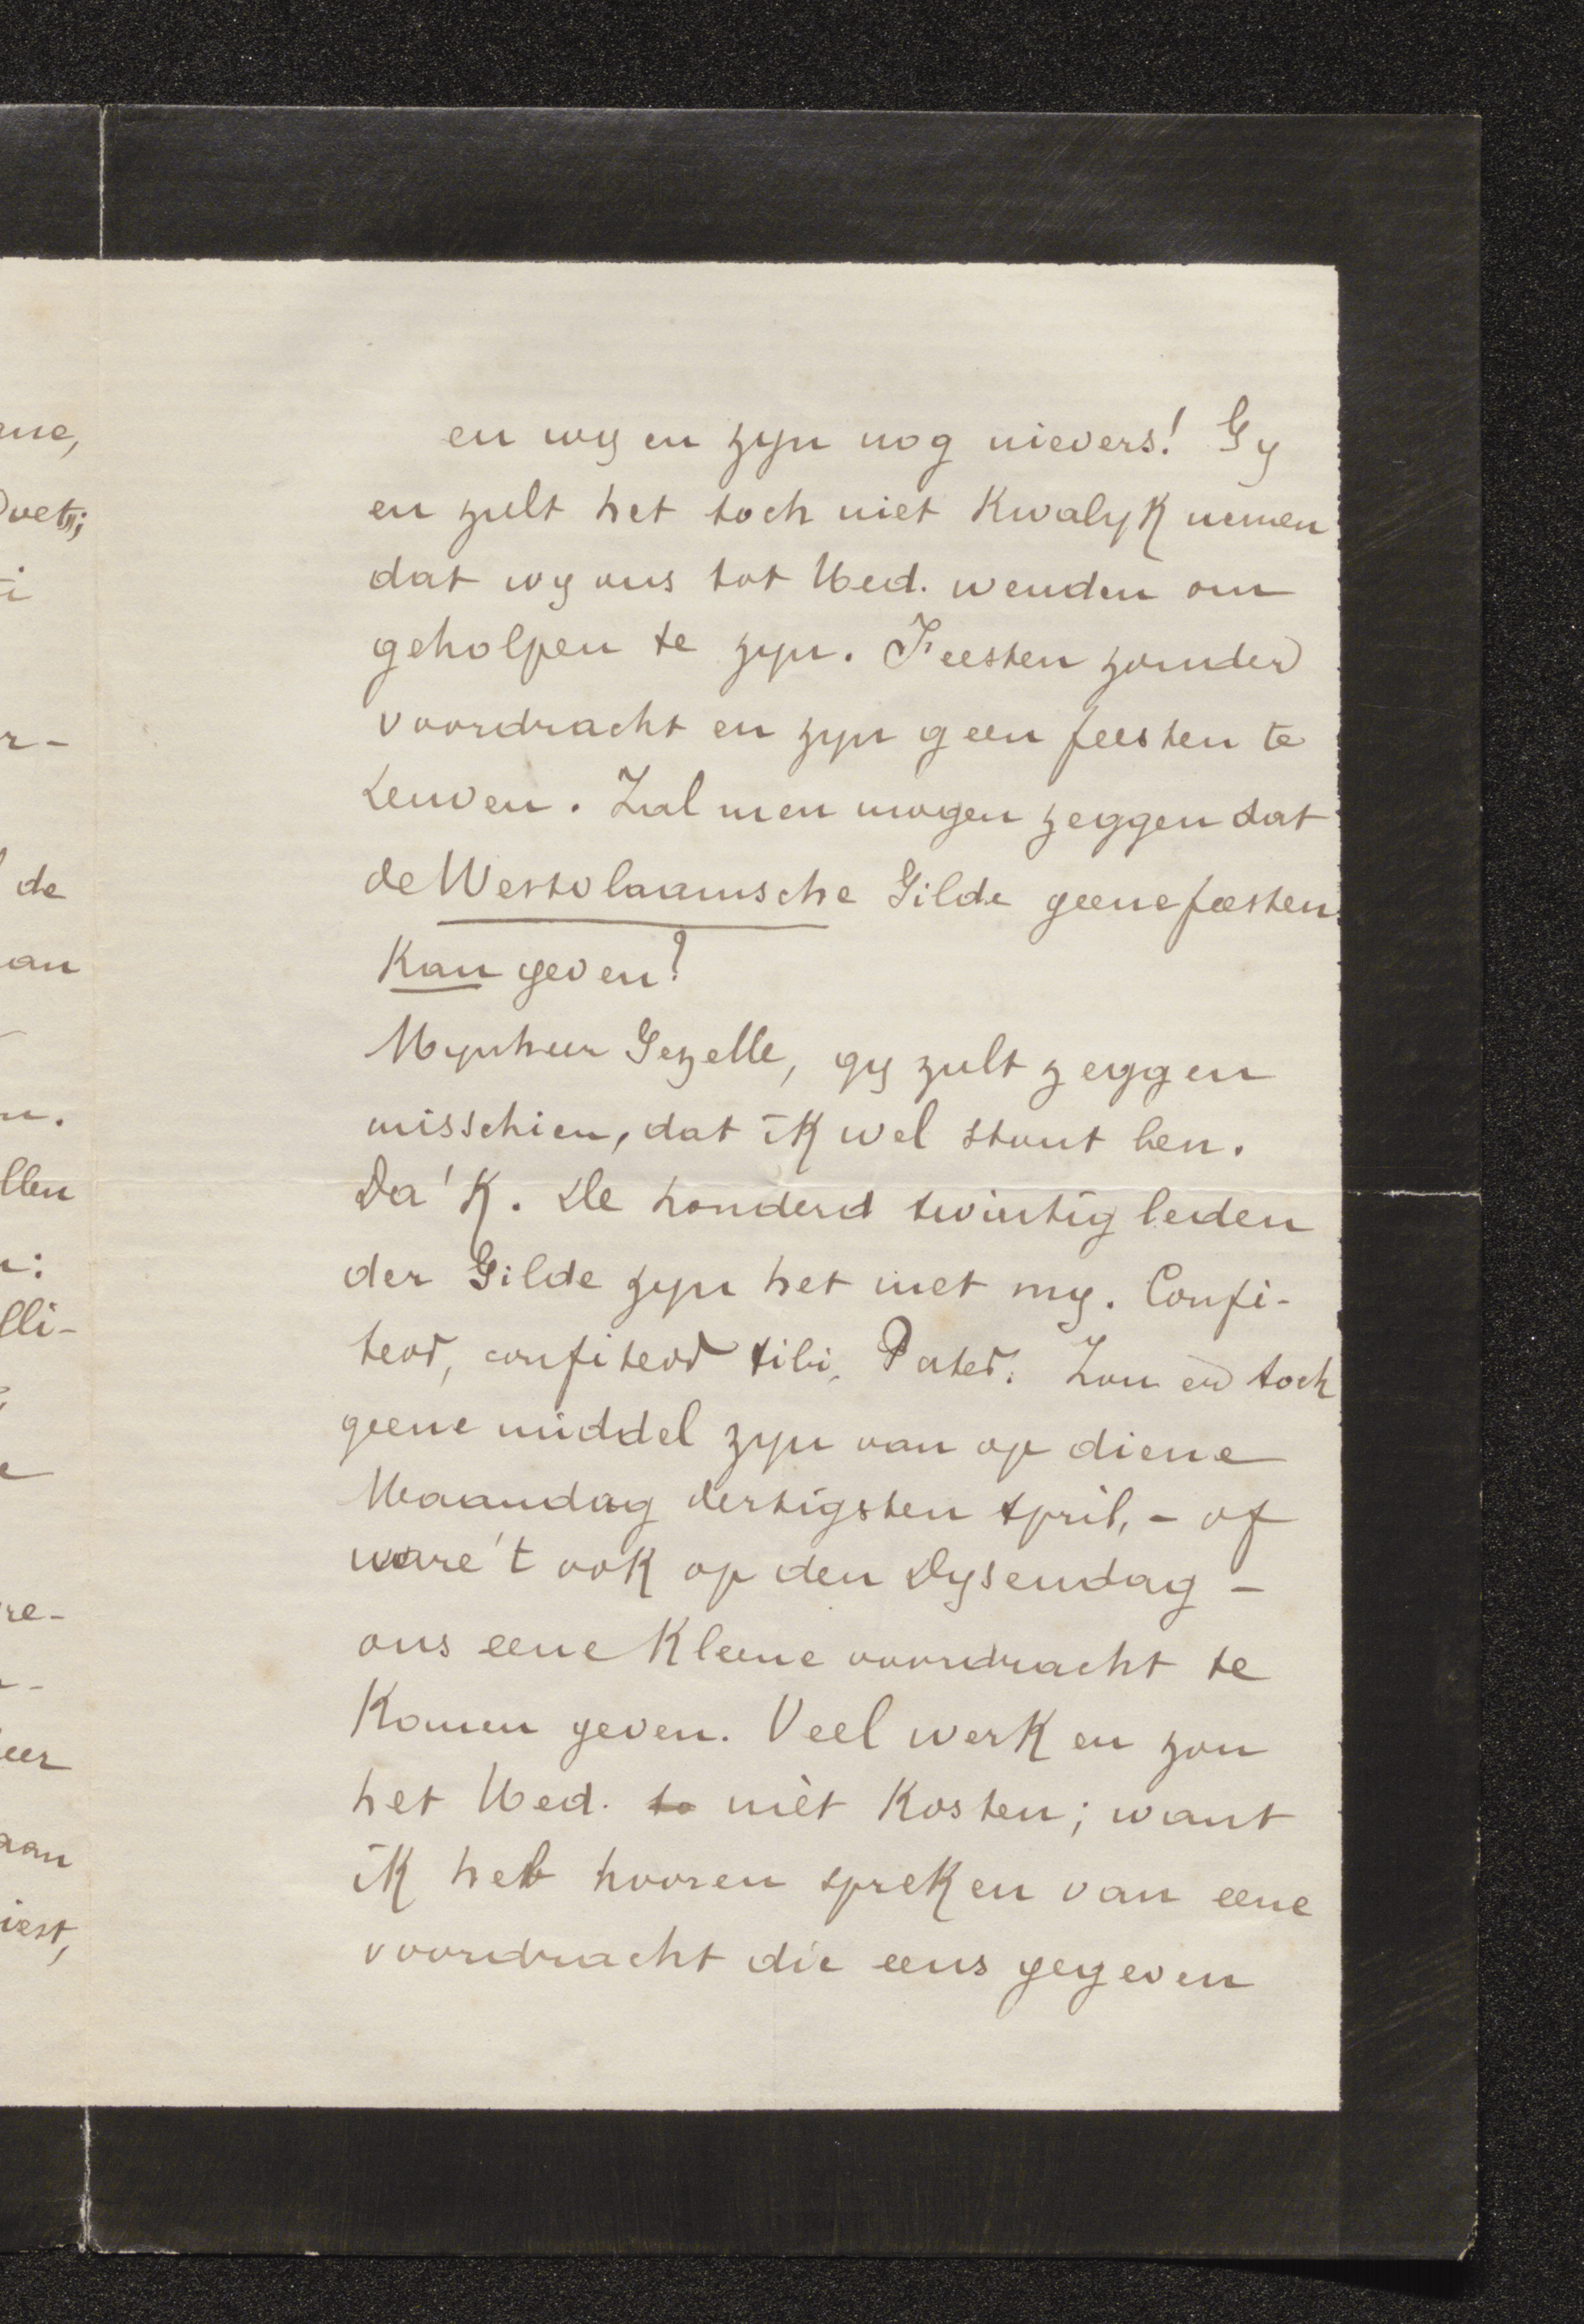 en wy en zyn nog nievers! Gy
en zult het toch niet Kwalyk nemen
dat wy ons tot Ued. wenden om
geholpen te zyn. Feesten zonder
voordracht en zyn geen feesten te
Leuven. Zal men mogen zeggen dat
de Westvlaamsche Gilde geene feesten
Kan geven?
Mynheer Gezelle, gy zult zeggen
misschien, dat ik wel stout ben.
Da 'k. De honderd twintig leden
der Gilde zyn het met my. Confi-
teor, confiteor tibi, Pater. Zou er toch
geene middel zyn van op diene
Maandag dertigsten April, - of
ware 't ook op den Dysendag -
ons eene Kleene voordracht te
Komen geven. Veel werk en zou
het Ued. to niet Kosten; want
ik heb hooren spreken van eene
voordracht die eens gegeven
de
an
llen
lli-
re-
eer
aan
iest,